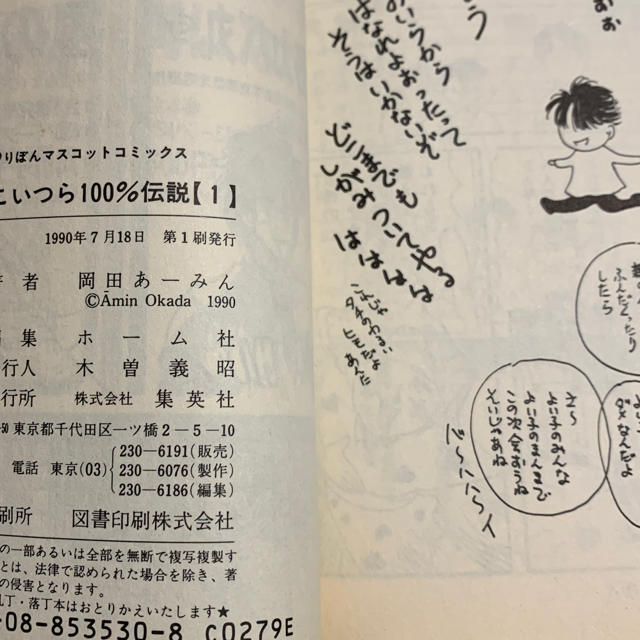 りぼんマスコットコミックス
こいつら100%伝説【1】
1990年7月18日　第1刷発行
著者　岡田あーみん
©Āmin Okada 1990
編集　ホーム社
発行人　木曽義昭
発行所　株式会社　集英社
50 東京都千代田区一ツ橋2－5－10
電話　東京(03)
230－6191(販売)
230－6076(製作)
230－6186(編集)
刷所　図書印刷株式会社
の一部あるいは全部を無断で複写複製す
とは、法律で認められた場合を除き、著
の侵害となります。
丁・落丁本はおとりかえいたします★
08-853530-8 C0279E
おいらから
はなれよおったって
そうはいかないぞ
どこまでも
しがみついてやる
はははは
これじゃ
タチのわるい
ヒモだよ
あんた
ふんだくったり
したら
ダメなんだよ
そ〜
よい子のみんな
よい子のまんまで
この次会おうね
そいじゃあね
バ〜ハハ〜イ